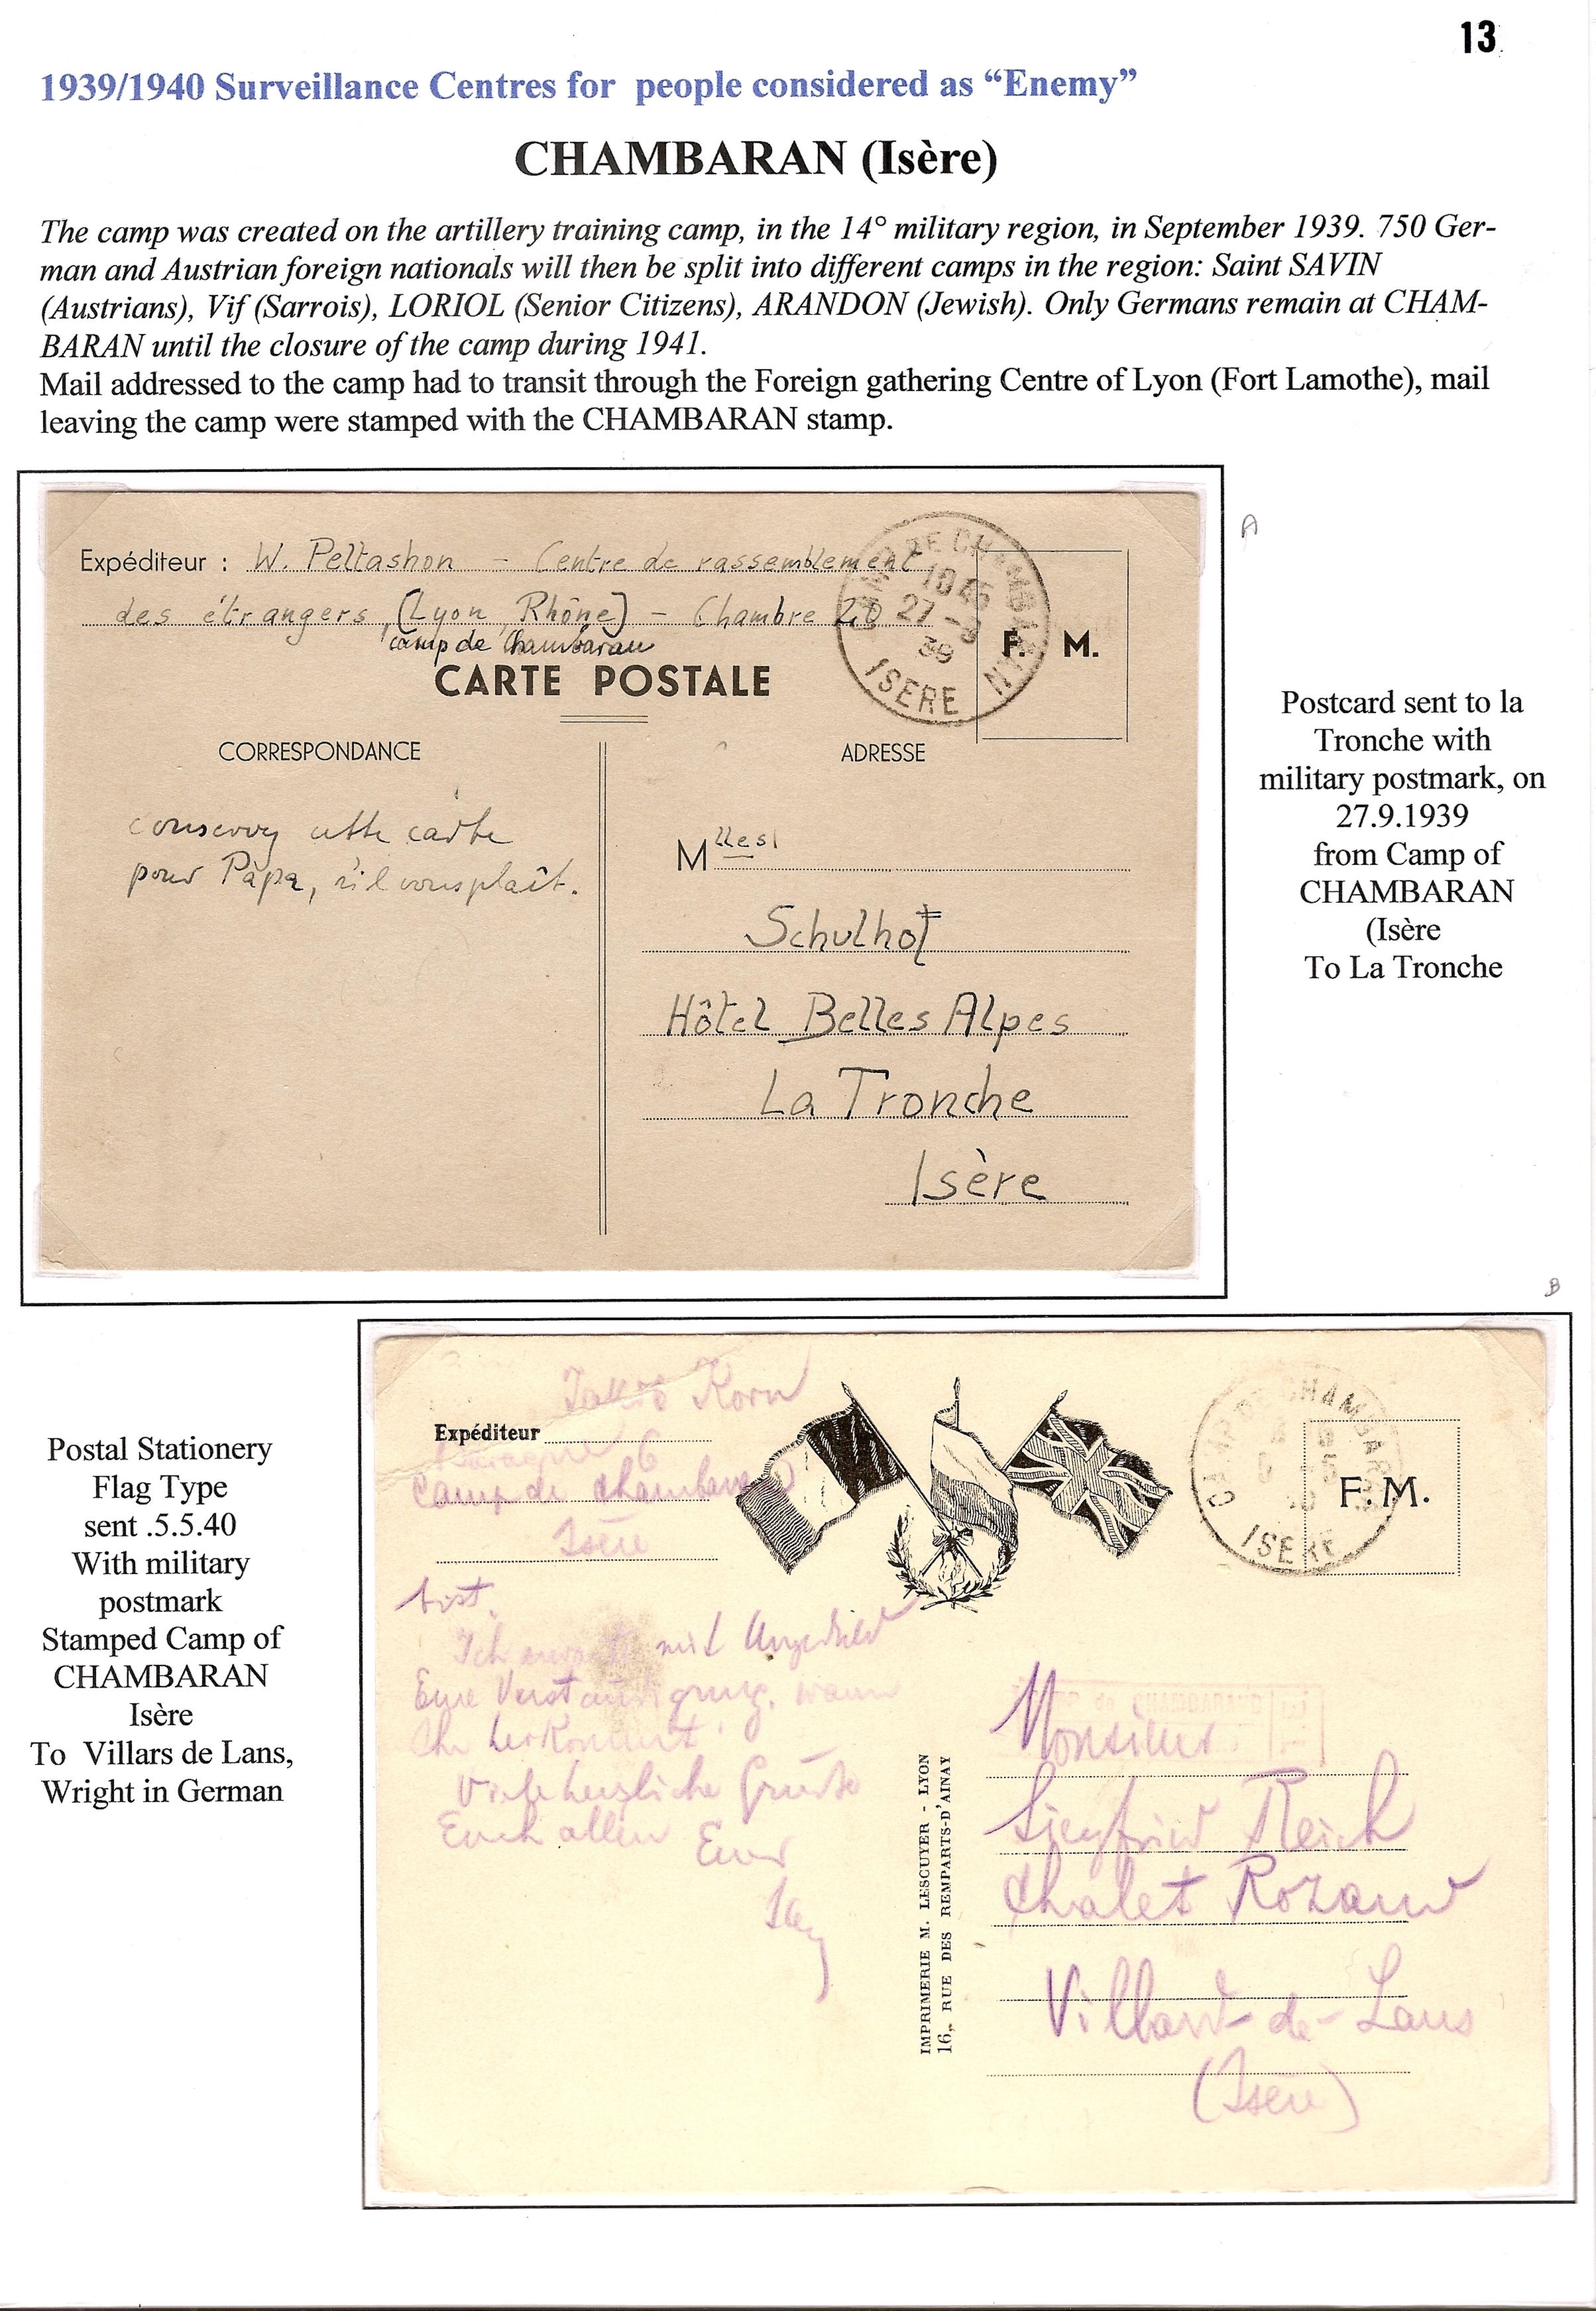 13
1939/1940 Surveillance Centres for people considered as “Enemy”
CHAMBARAN (Isère)
The camp was created on the artillery training camp, in the 14° military region, in September 1939. 750 Ger-
man and Austrian foreign nationals will then be split into different camps in the region: Saint SAVIN
(Austrians), Vif (Sarrois), LORIOL (Senior Citizens), ARANDON (Jewish). Only Germans remain at CHAM-
BARAN until the closure of the camp during 1941.
Mail addressed to the camp had to transit through the Foreign gathering Centre of Lyon (Fort Lamothe), mail
leaving the camp were stamped with the CHAMBARAN stamp.
A
Expéditeur : W. Peltashon - Centre de rassemblement
des étrangers (Lyon, Rhône) - Chambre 20
camp de Chambaran
CARTE POSTALE
CAMP DE CHAMBARAN
27 - 9
39
ISERE
F. M.
CORRESPONDANCE
ADRESSE
cette carte
pour Papa, s'il vous plaît.
Mlles
Schulhof
Hôtel Belles Alpes
La Tronche
Isère
Postcard sent to la
Tronche with
military postmark, on
27.9.1939
from Camp of
CHAMBARAN
(Isère
To La Tronche
B
Postal Stationery
Flag Type
sent .5.5.40
With military
postmark
Stamped Camp of
CHAMBARAN
Isère
To Villars de Lans,
Wright in German
Korn
Expéditeur
6
Camp de Chambaran
Isère
CAMP DE CHAMBARAN
ISERE
F. M.
Ich mit Ungeduld
Eure Verständigung, wann
Ihr herkommt.
Viele herzliche Grüsse
Euch allen Euer
de CHAMBARAND
IMPRIMERIE M. LESCUYER - LYON
16, RUE DES REMPARTS-D'AINAY
Monsieur
Siegfried Reich
Chalet
Villard-de-Lans
(Isère)